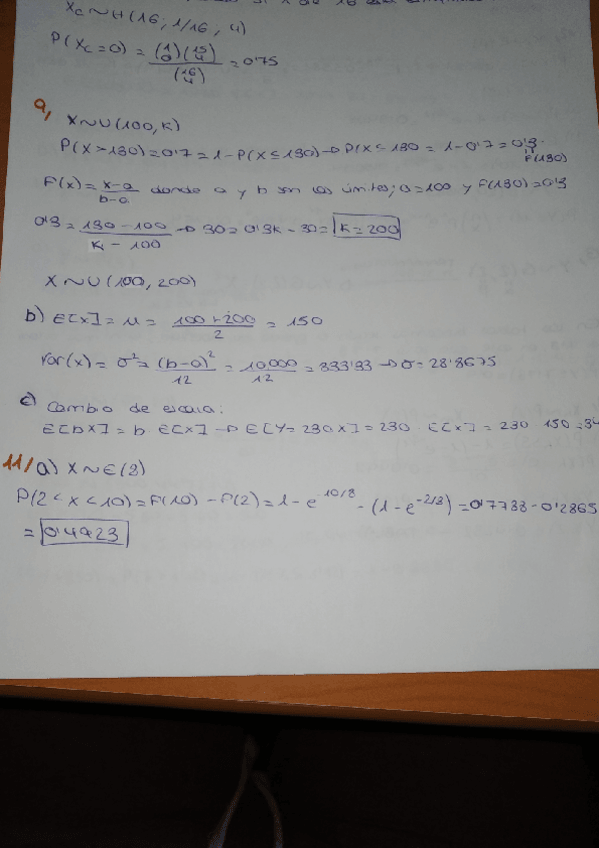 Xc ~ H(16, 1/16, 4)
P(Xc=0) = (1 0)(15 4) / (16 4) = 0'75
9,
X~U(100, K)
P(X>130)=0'7 = 1-P(X≤130) → P(X≤130 = 1-0'7 = 0'3.
F(130)
F(x) = x-a / b-a donde a y b son los límites; a=100 y F(130)=0'3
0'3 = 130-100 / K-100 → 30 = 0'3K - 30 = K=200
X~U(100, 200)
b) E[X] = μ = 100+200 / 2 = 150
Var(X) = σ² = (b-a)² / 12 = 10.000 / 12 = 833'33 → σ = 28'8675
c) Cambio de escala:
E[bX] = b · E[X] → E[Y= 230X] = 230 · E[X] = 230 · 150 = 34
11/ a) X~E(8)
P(2<X<10) = F(10) - F(2) = 1 - e^-10/8 - (1-e^-2/8) = 0'7733-0'2865
= 0'4923